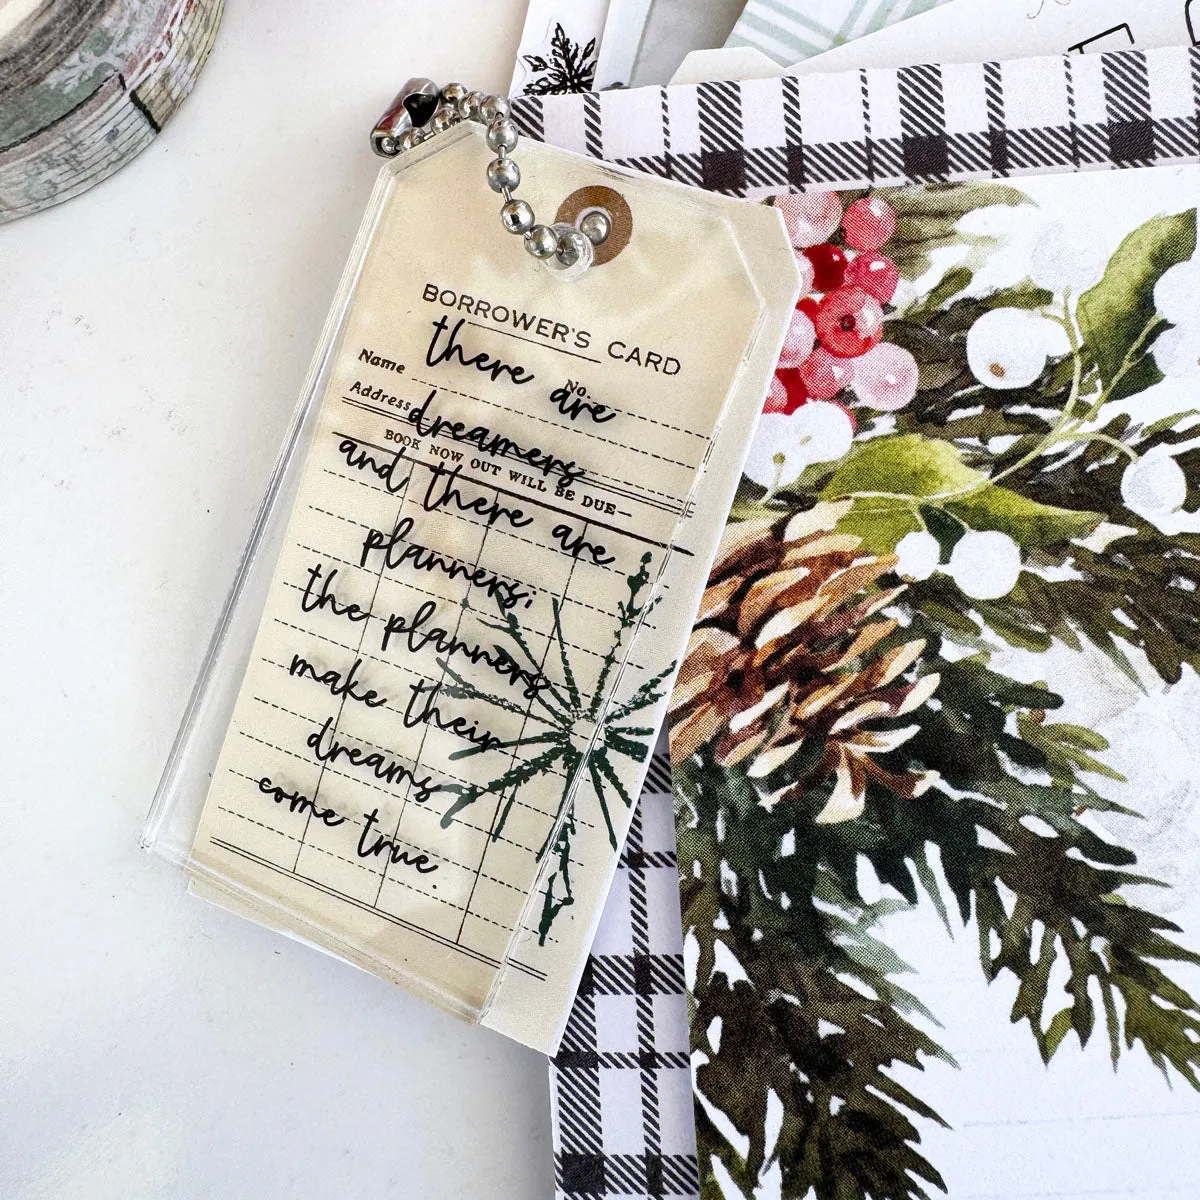 BORROWER'S CARD
there are
Name No.
Address
dreamers
BOOK NOW OUT WILL BE DUE—
and there are
planners;
the planners
make their
dreams
come true.